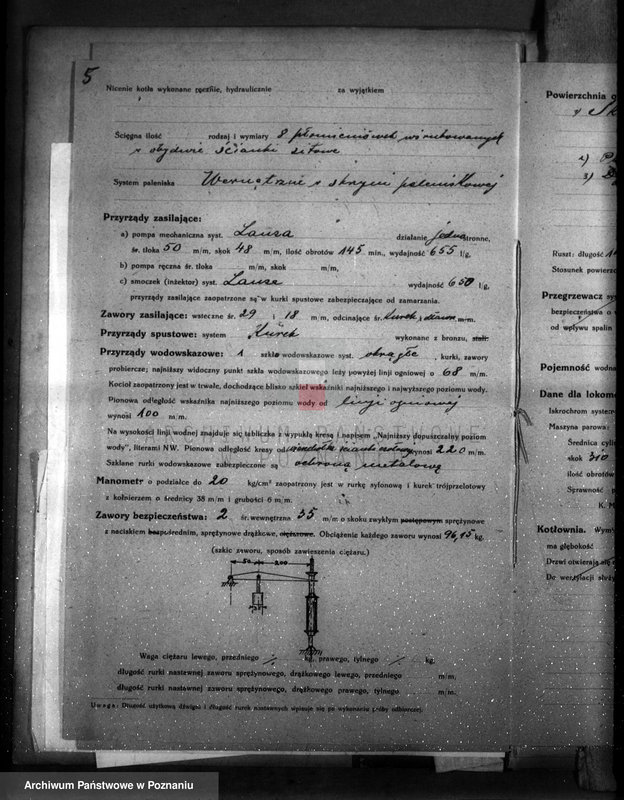 5
Nicenie kotła wykonane ręcznie, hydraulicznie za wyjątkiem
Ścięgna ilość rodzaj i wymiary 8 płomieniówek wśrubowanych
w obydwie ścianki sitowe
System paleniska Wewnętrzne w skrzyni paleniskowej
Przyrządy zasilające:
a) pompa mechaniczna syst. Lanza działanie jednostronne,
śr. tłoka 50 m/m, skok 48 m/m, ilość obrotów 145 min., wydajność 655 l/g,
b) pompa ręczna śr. tłoka m/m, skok m/m,
c) smoczek (inżektor) syst. Lanza wydajność 650 l/g,
przyrządy zasilające zaopatrzone są w kurki spustowe zabezpieczające od zamarzania.
Zawory zasilające: wsteczne śr. 29 i 18 m/m, odcinające śr. Kurek i m/m.
Przyrządy spustowe: system Kurek wykonane z bronzu, stali.
Przyrządy wodowskazowe: 1 szkło wodowskazowe syst. okrągłe, kurki, zawory
probiercze; najniższy widoczny punkt szkła wodowskazowego leży powyżej linji ogniowej o 68 m/m.
Kocioł zaopatrzony jest w trwałe, dochodzące blisko szkieł wskaźniki najniższego i najwyższego poziomu wody.
Pionowa odległość wskaźnika najniższego poziomu wody od linji ogniowej
wynosi 100 m/m.
ARCHIWUM PAŃSTWOWE
W POZNANIU
Na wysokości linji wodnej znajduje się tabliczka z wypukłą kresą i napisem „Najniższy dopuszczalny poziom
wody”, literami NW. Pionowa odległość kresy od wynosi 220 m/m.
Szklane rurki wodowskazowe zabezpieczone są ochroną metalową
Manometr o podziałce do 20 kg/cm² zaopatrzony jest w rurkę syfonową i kurek trójprzelotowy
z kołnierzem o średnicy 38 m/m i grubości 6 m/m.
Zawory bezpieczeństwa: 2 śr. wewnętrzna 35 m/m o skoku zwykłym postępowym sprężynowe
z naciskiem bezpośrednim, sprężynowe drążkowe, ciężarowe. Obciążenie każdego zaworu wynosi 96,15 kg.
(szkic zaworu, sposób zawieszenia ciężaru.)
50 200
35
Waga ciężaru lewego, przedniego kg, prawego, tylnego kg,
długość rurki nastawnej zaworu sprężynowego, drążkowego lewego, przedniego m/m,
długość rurki nastawnej zaworu sprężynowego, drążkowego prawego, tylnego m/m.
Uwaga: Długość użytkową dźwigni i długość rurek nastawnych wpisuje się po wykonaniu próby odbiorczej.
Powierzchnia o
1)
2)
3)
Ruszt: długość
Stosunek powierzc
Przegrzewacz sys
bezpieczeństwa o
od wpływu spalin
Pojemność wodna
Dane dla lokomo
Iskrochron system
Maszyna parowa:
Średnica cylin
skok 310
ilość obrotów
Sprawność p
K. M
Kotłownia. Wym
ma głębokość
Drzwi otwierają się
Do wentylacji służy
Archiwum Państwowe w Poznaniu